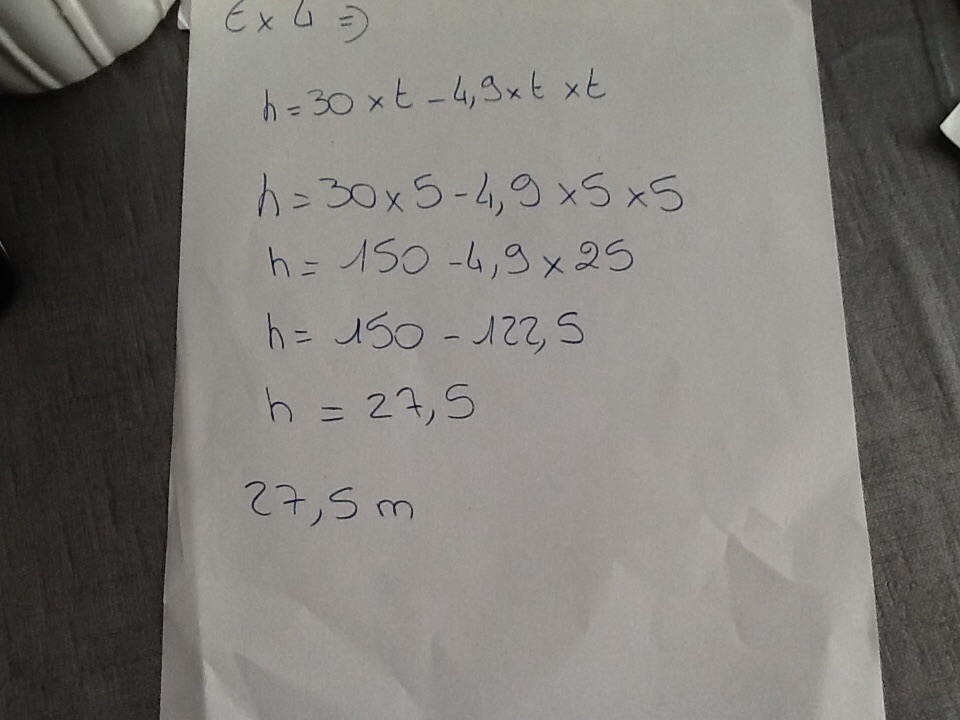 Ex 4 =>
h = 30 × t - 4,9 × t × t
h = 30 × 5 - 4,9 × 5 × 5
h = 150 - 4,9 × 25
h = 150 - 122,5
h = 27,5
27,5 m